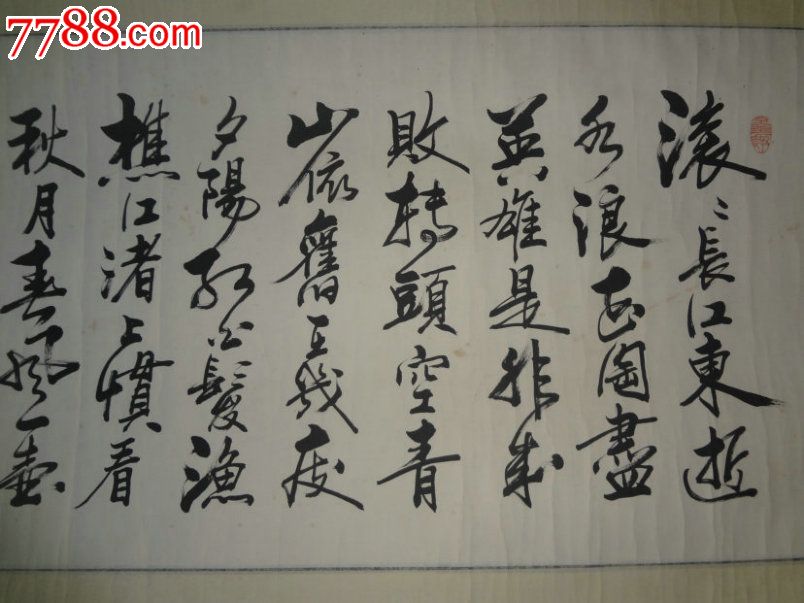 7788.com
滚〻長江東逝
水浪花淘盡
英雄是非成
敗轉頭空青
山依舊在幾度
夕陽紅白髮漁
樵江渚上慣看
秋月春風一壺